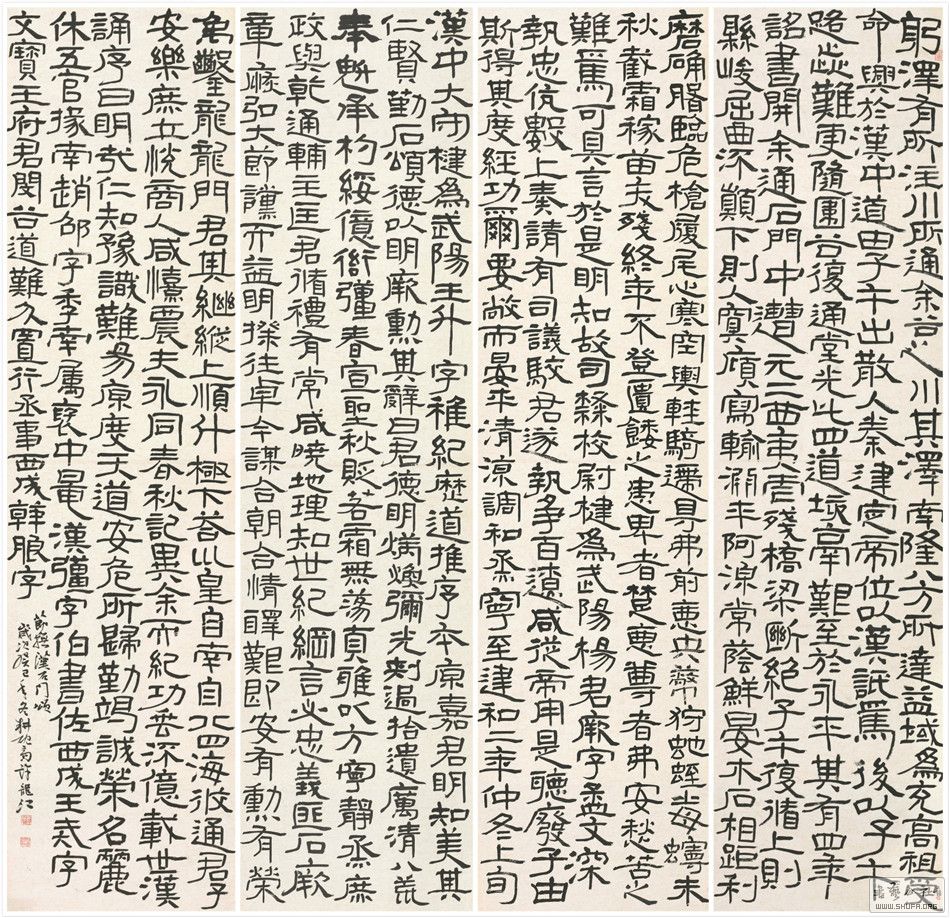 躬澤有所注川所通余谷之川其澤南隆八方所達益域爲充高祖受
命興於漢中道由子午出散入秦建定帝位以漢詆焉後以子午
路歮難更隨圍谷復通堂光此四道垓鬲艱至於永平其有四年
詔書開余通石門中遭元二西夷虐殘橋梁斷絕子午復循上則
縣峻屈曲流顛下則入寞廎寫輸淵平阿湶常蔭鮮晏木石相距利
磨确臨危槍履尾心寒空輿輕騎遰㝵弗前惡虫蔽狩虵蛭毒蟃未
秋截霜稼苗夭殘終年不登匱餧之患卑者楚惡尊者弗安愁苦之
難焉可具言於是明知故司隸校尉楗爲武陽楊君厥字孟文深
執忠伉數上奏請有司議駮君遂執爭百遼咸從帝用是聽廢子由
斯得其度經功爾要敞而晏平清涼調和烝寧至建和二年仲冬上旬
漢中大守楗爲武陽王升字稚紀歷道推序本原嘉君明知美其
仁賢勒石頌德以明厥勳其辭曰君德明炳煥彌光刺過拾遺厲清八荒
奉魁承杓綏億衙彊春宣聖秋貶若霜無蕩貞雅以方寧靜烝庶
政與乾通輔主匡君循禮有常咸曉地理知世紀綱言必忠義匪石厥
章廢弘大節讜而益明揆往卓今謀合朝合情醳艱即安有勳有榮
禹鑿龍龍門君其繼縱上順斗極下荅巛皇自南自北四海攸通君子
安樂庶士悅商人咸憘農夫永同春秋記異余而紀功垂流億載世漢
誦序曰明哉仁知豫識難易原度天道安危所歸勤竭誠榮名麗
休五官掾南趙邵字季南屬褒中晁漢彊字伯書佐西成王戒字
文寶王府君閔谷道難分置行丞事西成韓朖字
節撫漢石門頌
WWW.SHUFA.ORG